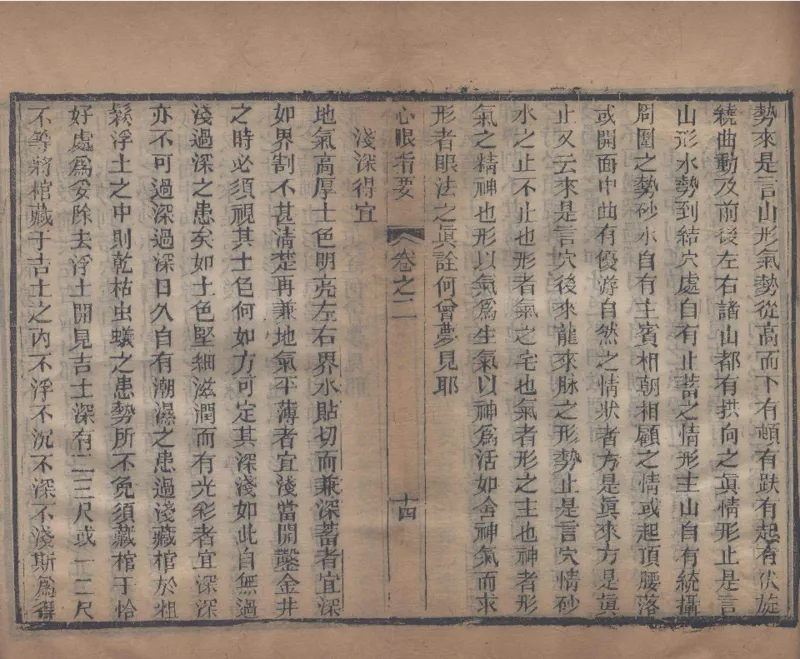 勢來是言山形氣勢從高而下有頓有跌有起有伏旋
繞曲動及前後左右諸山都有拱向之眞情形止是言
山形水勢到結穴處自有止蓄之情形主山自有統攝
周圍之勢砂水自有主賓相朝相顧之情或起頂腰落
或開面中曲有優游自然之情狀者方是眞來方是眞
止又云來是言穴後來龍來脉之形勢止是言穴情砂
水之止不止也形者氣之宅也氣者形之主也神者形
氣之精神也形以氣爲生氣以神爲活如舍神氣而求
形者眼法之眞詮何曾夢見耶
心眼指要
卷之二
十四
淺深得宜
地氣高厚土色明亮左右界水貼切而兼深蓄者宜深
如界割不甚清楚再兼地氣平薄者宜淺當開鑿金井
之時必須視其土色何如方可定其深淺如此自無過
淺過深之患矣如土色堅細滋潤而有光彩者宜深深
亦不可過深過深日久自有潮濕之患過淺藏棺於粗
鬆浮土之中則乾枯虫蟻之患勢所不免須藏棺于恰
好處爲妥除去浮土開見吉土深有二三尺或一二尺
不等將棺藏于吉土之內不浮不沉不深不淺斯爲得